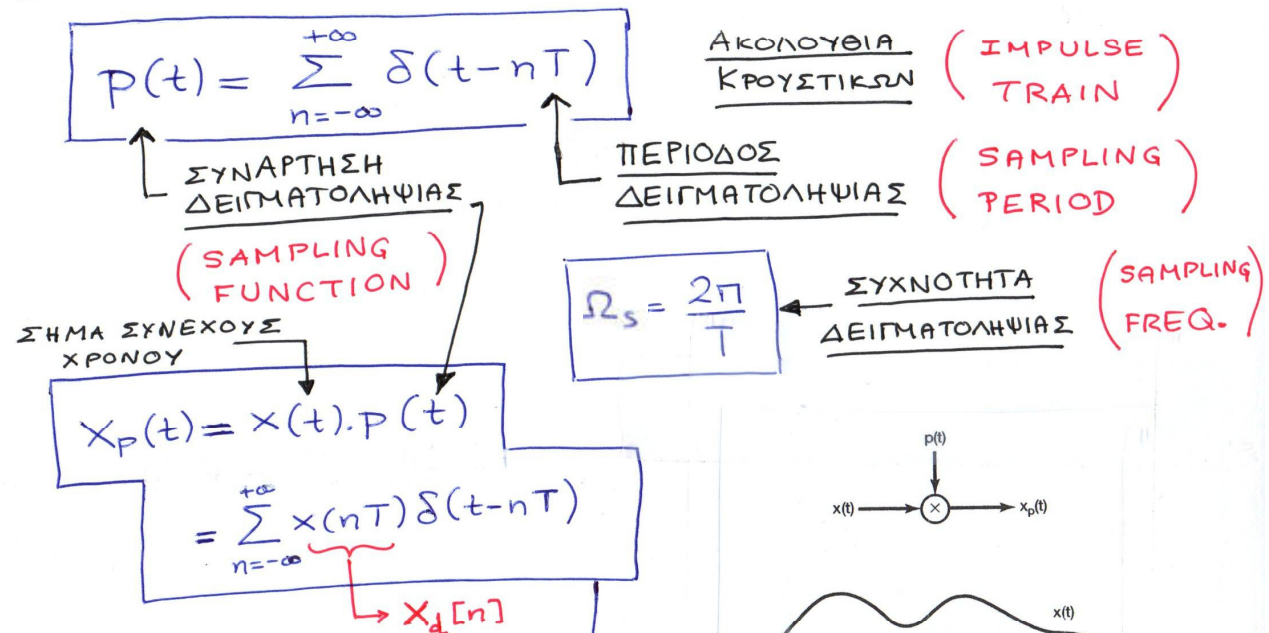 p(t) = Σ_{n=-∞}^{+∞} δ(t-nT)
ΑΚΟΛΟΥΘΙΑ
ΚΡΟΥΣΤΙΚΩΝ
(IMPULSE
TRAIN)
ΣΥΝΑΡΤΗΣΗ
ΔΕΙΓΜΑΤΟΛΗΨΙΑΣ
(SAMPLING
FUNCTION)
ΠΕΡΙΟΔΟΣ
ΔΕΙΓΜΑΤΟΛΗΨΙΑΣ
(SAMPLING
PERIOD)
Ω_s = 2π/T
ΣΥΧΝΟΤΗΤΑ
ΔΕΙΓΜΑΤΟΛΗΨΙΑΣ
(SAMPLING
FREQ.)
ΣΗΜΑ ΣΥΝΕΧΟΥΣ
ΧΡΟΝΟΥ
x_p(t) = x(t).p(t)
= Σ_{n=-∞}^{+∞} x(nT) δ(t-nT)
x_d[n]
p(t)
x(t)
×
x_p(t)
x(t)